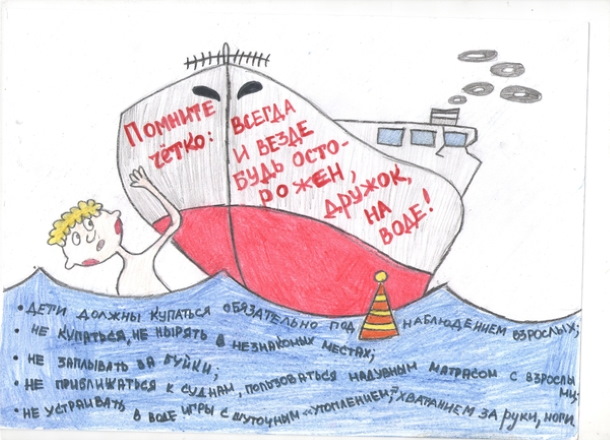 Помните
чётко:
всегда
и везде
будь осто-
рожен,
дружок,
на
воде!
• дети должны купаться обязательно под наблюдением взрослых;
• не купаться, не нырять в незнакомых местах;
• не заплывать за буйки;
• не приближаться к суднам, пользоваться надувным матрасом с взрослы
ми;
• не устраивать в воде игры с шуточным "утоплением," хватанием за руки, ноги.